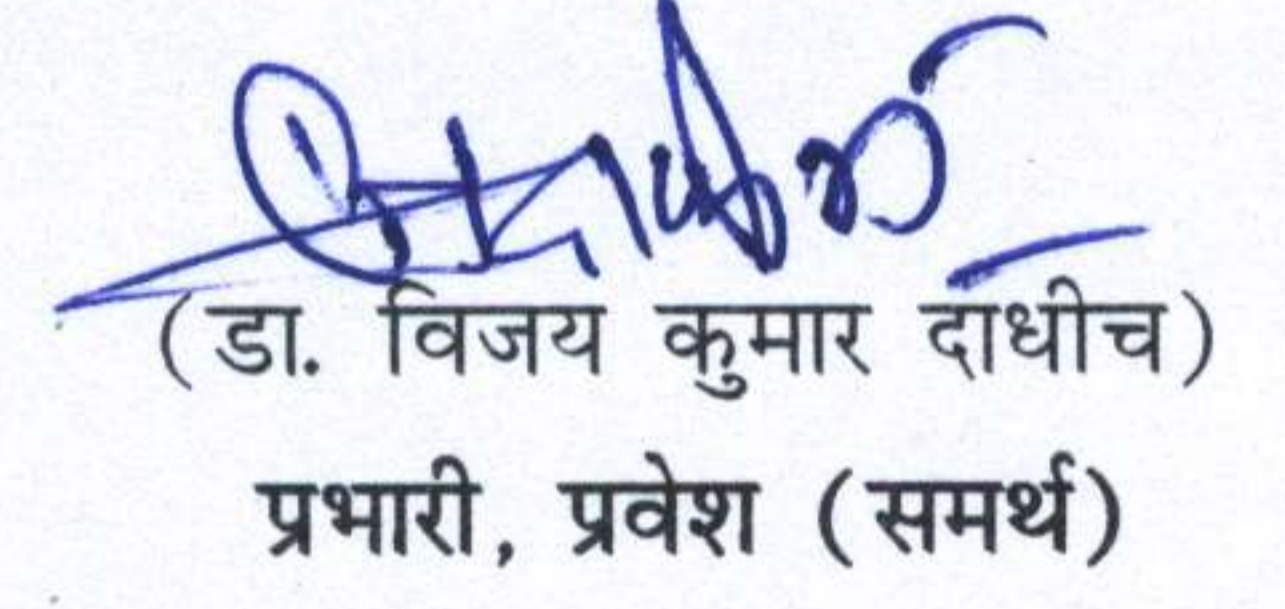 (डा. विजय कुमार दाधीच)
प्रभारी, प्रवेश (समर्थ)